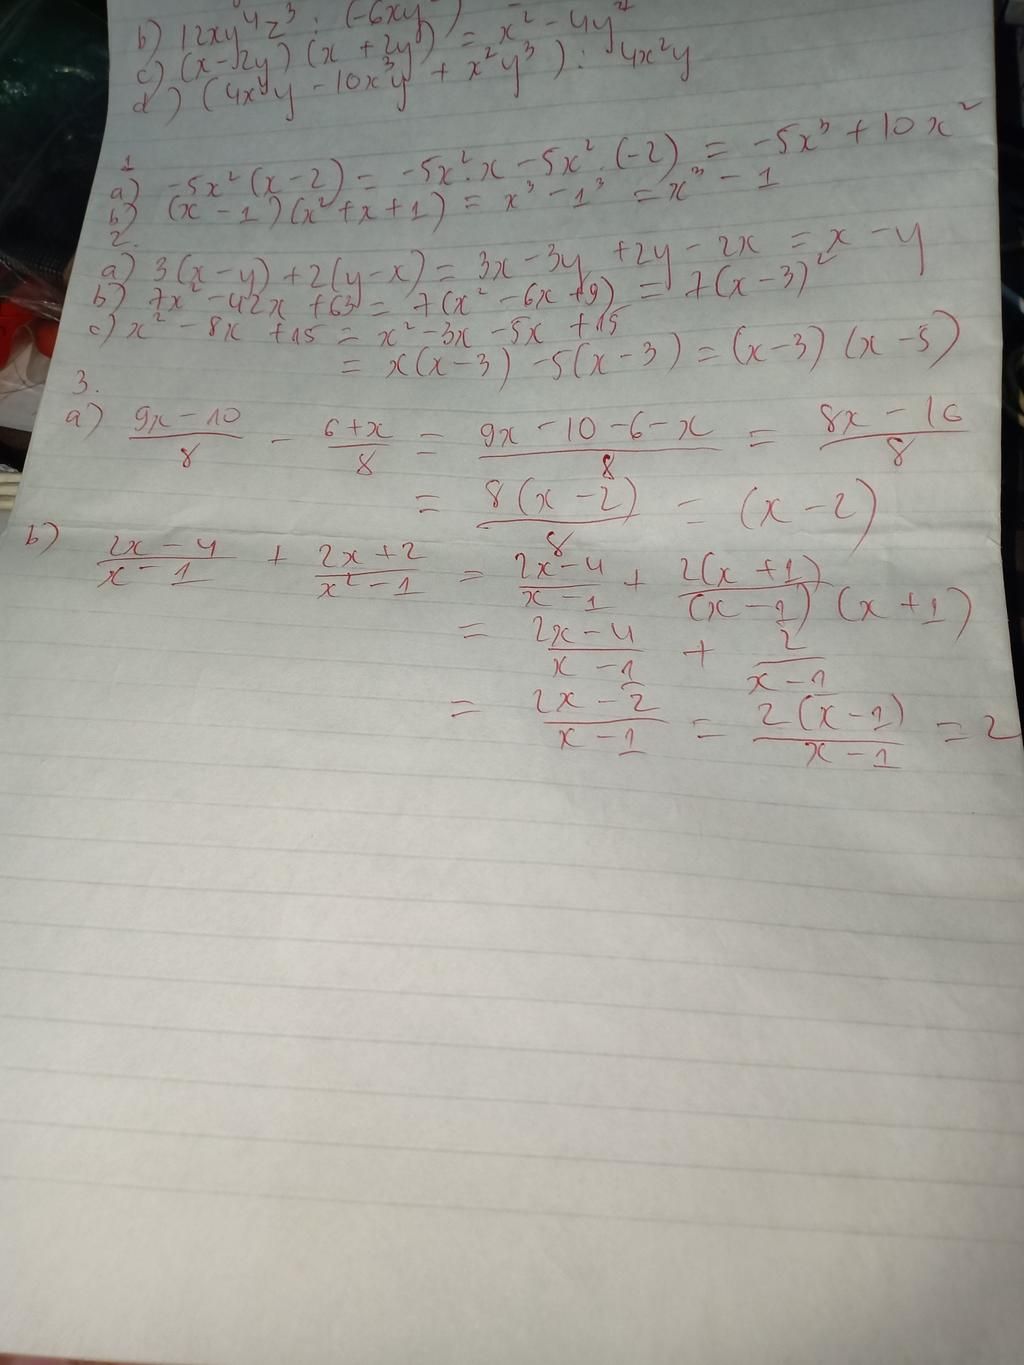 b) 12xy⁴z³ : (-6xy
c) (x-2y) (x + 2y) = x² - 4y²
d) (4x⁴y - 10x³y + x²y³) : 4x²y
1
a) -5x² (x-2) = -5x².x - 5x².(-2) = -5x³ + 10x²
b) (x - 1)(x² + x + 1) = x³ - 1³ = x³ - 1
2.
a) 3(x-y) + 2(y-x) = 3x - 3y + 2y - 2x = x - y
b) 7x² - 42x + 63 = 7(x² - 6x + 9) = 7(x-3)²
c) x² - 8x + 15 = x² - 3x - 5x + 15
= x(x-3) - 5(x-3) = (x-3) (x-5)
3.
a) (9x - 10)/8 - (6+x)/8 = (9x - 10 - 6 - x)/8 = (8x - 16)/8
= 8(x - 2)/8 = (x - 2)
b) (2x - 4)/(x - 1) + (2x + 2)/(x² - 1) = (2x - 4)/(x - 1) + 2(x + 1)/(x - 1)(x + 1)
= (2x - 4)/(x - 1) + 2/(x - 1)
= (2x - 2)/(x - 1) = 2(x - 1)/(x - 1) = 2